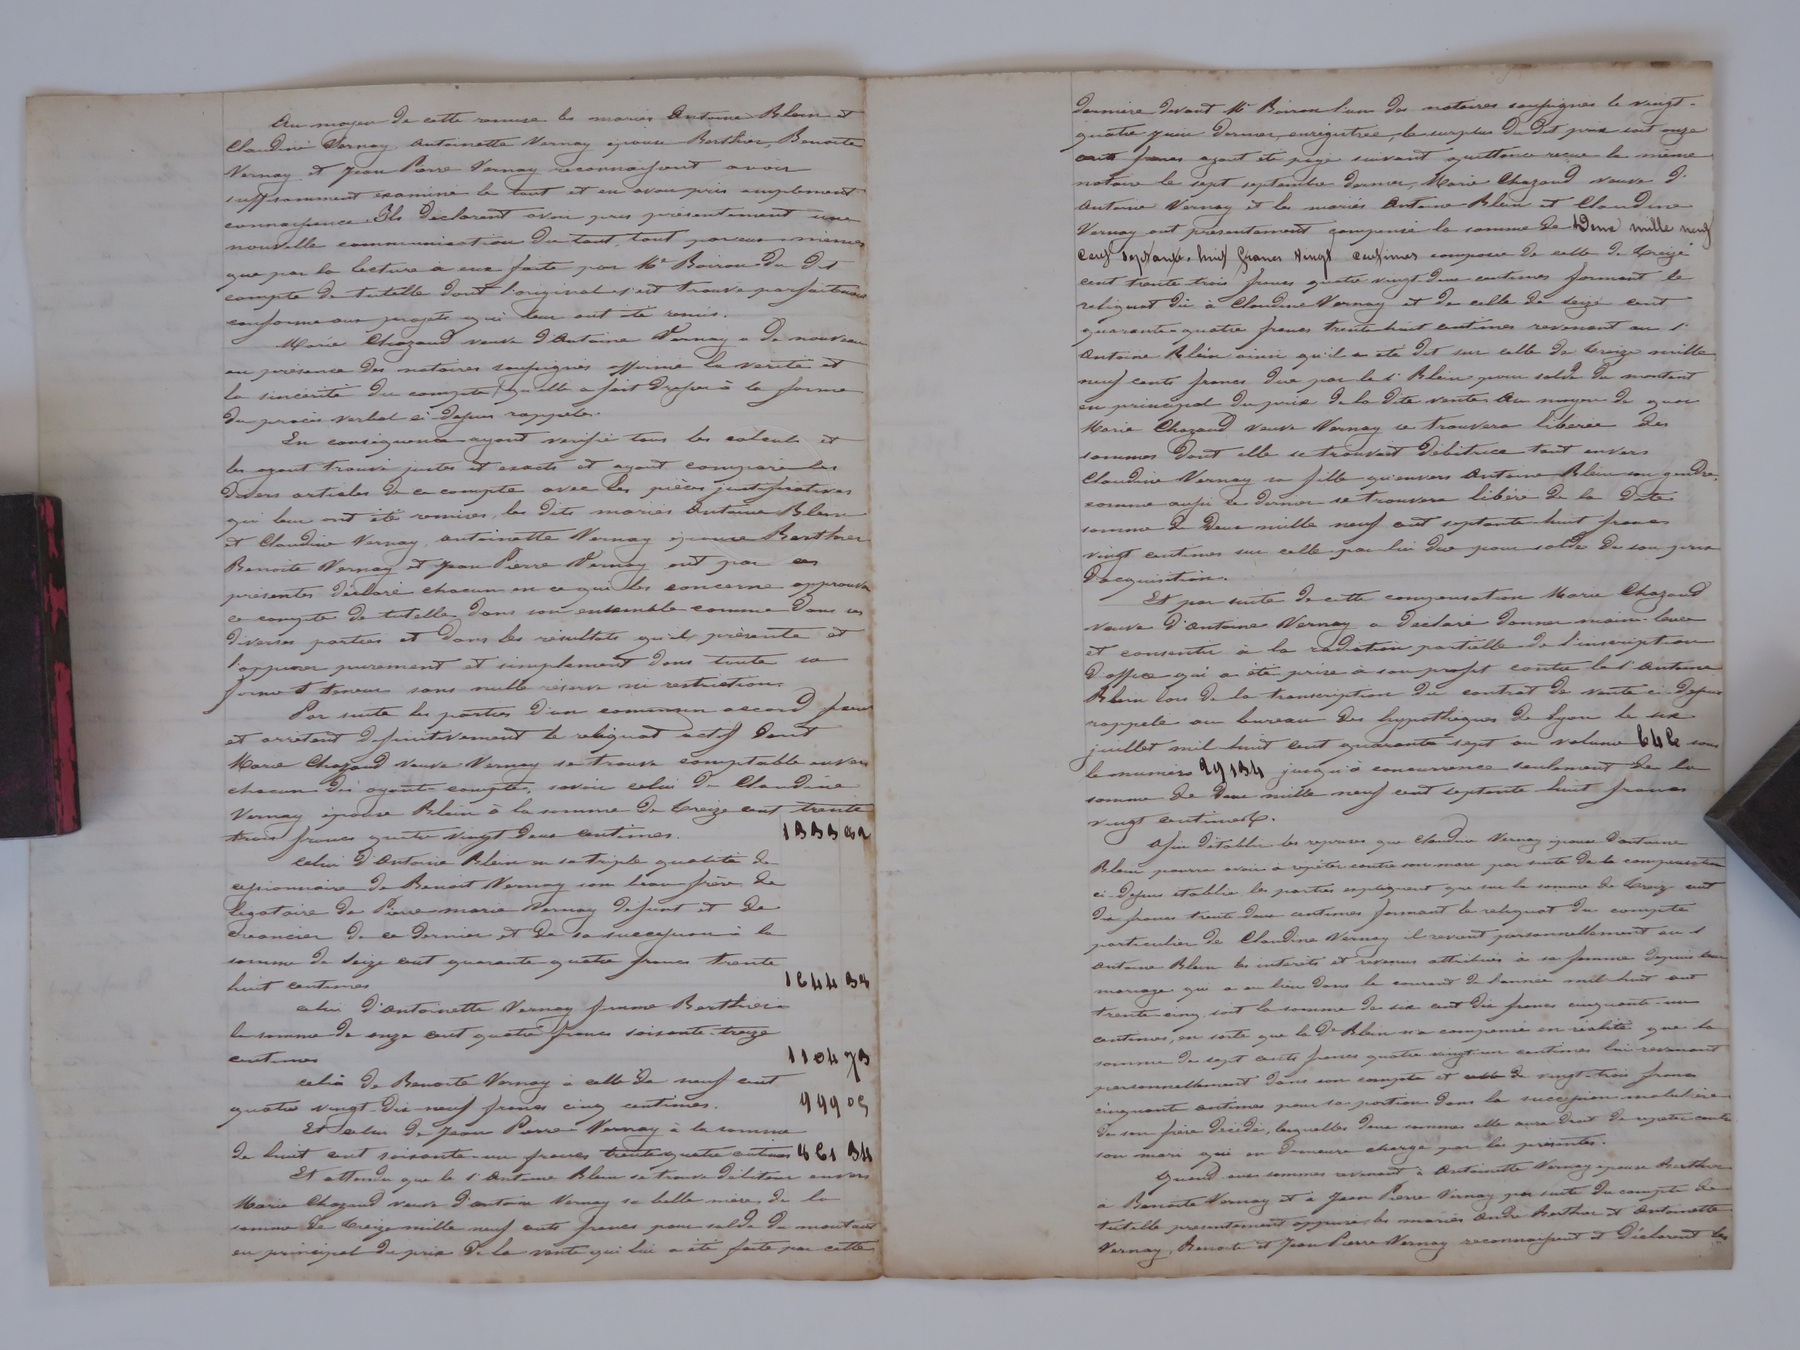 Au moyen de cette remise les mariés Antoine Blein et
Claudine Vernay, Antoinette Vernay épouse Berthier, Benoite
Vernay et Jean Pierre Vernay reconnaissent avoir
suffisamment examiné le tout et en avoir pris amplement
connaissance. Ils déclarent avoir pris présentement une
nouvelle communication du tout, tant par eux-mêmes
que par la lecture à eux faite par Me Boiron du dit
compte de tutelle dont l'original s'est trouvé parfaitement
conforme aux projets qui leur ont été remis.
Marie Chazaud veuve d'Antoine Vernay a de nouveau
en présence des notaires soussignés affirmé la vérité et
la sincérité du compte qu'elle a fait dresser à la forme
du procès verbal ci-dessus rappelé.
En conséquence ayant vérifié tous les calculs et
les ayant trouvé justes et exacts et ayant comparé les
divers articles de ce compte avec les pièces justificatives
qui leur ont été remises, les dits mariés Antoine Blein
et Claudine Vernay, Antoinette Vernay épouse Berthier
Benoite Vernay et Jean Pierre Vernay ont par ces
présentes déclaré chacun en ce qui les concerne approuver
ce compte de tutelle dans son ensemble comme dans ses
diverses parties et dans les résultats qu'il présente et
l'apposer purement et simplement dans toute sa
forme et teneur sans nulle réserve ni restriction.
Par suite les parties d'un commun accord fixent
et arrêtent définitivement le reliquat actif dont
Marie Chazaud veuve Vernay se trouve comptable envers
chacun des ayants-compte, savoir celui de Claudine
Vernay épouse Blein à la somme de treize cent trente
trois francs quatre vingt deux centimes. 1333 82
Celui d'Antoine Blein en sa triple qualité de
cessionnaire de Benoit Vernay son beau frère de
légataire de Pierre marie Vernay défunt et de
créancier de ce dernier et de sa succession à la
somme de seize cent quarante quatre francs trente
huit centimes 1644 38
celui d'Antoinette Vernay femme Berthier à
la somme de onze cent quatre francs soixante treize
centimes 1104 73
celui de Benoite Vernay à celle de neuf cent
quatre vingt-dix-neuf francs cinq centimes. 999 05
Et celui de Jean Pierre Vernay à la somme
de huit cent soixante-un francs trente quatre centimes 861 34
Et attendu que le s. Antoine Blein se trouve débiteur envers
Marie Chazaud veuve d'Antoine Vernay sa belle mère de la
somme de treize mille neuf cents francs pour solde du montant
en principal du prix de la vente qui lui a été faite par cette
dernière devant Me Boiron l'un des notaires soussignés le vingt-
quatre juin dernier, enregistrée, le surplus du dit prix soit onze
cents francs ayant été payé suivant quittance reçue le même
notaire le sept septembre dernier, Marie Chazaud veuve d'
Antoine Vernay et les mariés Antoine Blein et Claudine
Vernay ont présentement compensé la somme de Deux mille neuf
cent septante-huit francs vingt centimes composée de celle de treize
cent trente trois francs quatre vingt deux centimes formant le
reliquat dû à Claudine Vernay et de celle de seize cent
quarante-quatre francs trente-huit centimes revenant au s.
Antoine Blein ainsi qu'il a été dit sur celle de treize mille
neuf cents francs due par le s. Blein pour solde du montant
en principal du prix de la dite vente. Au moyen de quoi
Marie Chazaud veuve Vernay se trouvera libérée des
sommes dont elle se trouvait débitrice tant envers
Claudine Vernay sa fille qu'envers Antoine Blein son gendre,
comme aussi ce dernier se trouvera libéré de la dite
somme de Deux mille neuf cent septante huit francs
vingt centimes sur celle par lui due pour solde de son prix
d'acquisition.
Et par suite de cette compensation Marie Chazaud
veuve d'Antoine Vernay a déclaré donner main-levée
et consentir à la radiation partielle de l'inscription
d'office qui a été prise à son profit contre le s. Antoine
Blein lors de la transcription du contrat de vente ci-dessus
rappelé au bureau des hypothèques de Lyon le six
juillet mil huit cent quarante sept au volume 646 sous
le numéro 29134 jusqu'à concurrence seulement de la
somme de Deux mille neuf cent septante huit francs
vingt centimes.
Afin d'établir les reprises que Claudine Vernay épouse d'Antoine
Blein pourra avoir à répéter contre son mari par suite de la compensation
ci-dessus établie les parties expliquent que sur la somme de treize cent
dix francs trente deux centimes formant le reliquat du compte
particulier de Claudine Vernay il revient personnellement au s.
Antoine Blein les intérêts et revenus attribués à sa femme depuis leur
mariage qui a eu lieu dans le courant de l'année mil huit cent
trente cinq soit la somme de six cent dix francs cinquante-un
centimes, en sorte que la De Blein n'a compensé en réalité que la
somme de sept cents francs quatre vingt un centimes lui revenant
personnellement dans son compte et celle de vingt-trois francs
cinquante centimes pour sa portion dans la succession mobilière
de son frère décédé, lesquelles deux sommes elle aura droit de répéter contre
son mari qui en demeure chargé par les présentes.
Quand aux sommes revenant à Antoinette Vernay épouse Berthier
à Benoite Vernay et à Jean Pierre Vernay par suite du compte de
tutelle présentement apposé, les mariés André Berthier et Antoinette
Vernay, Benoite et Jean Pierre Vernay reconnaissent et déclarent les